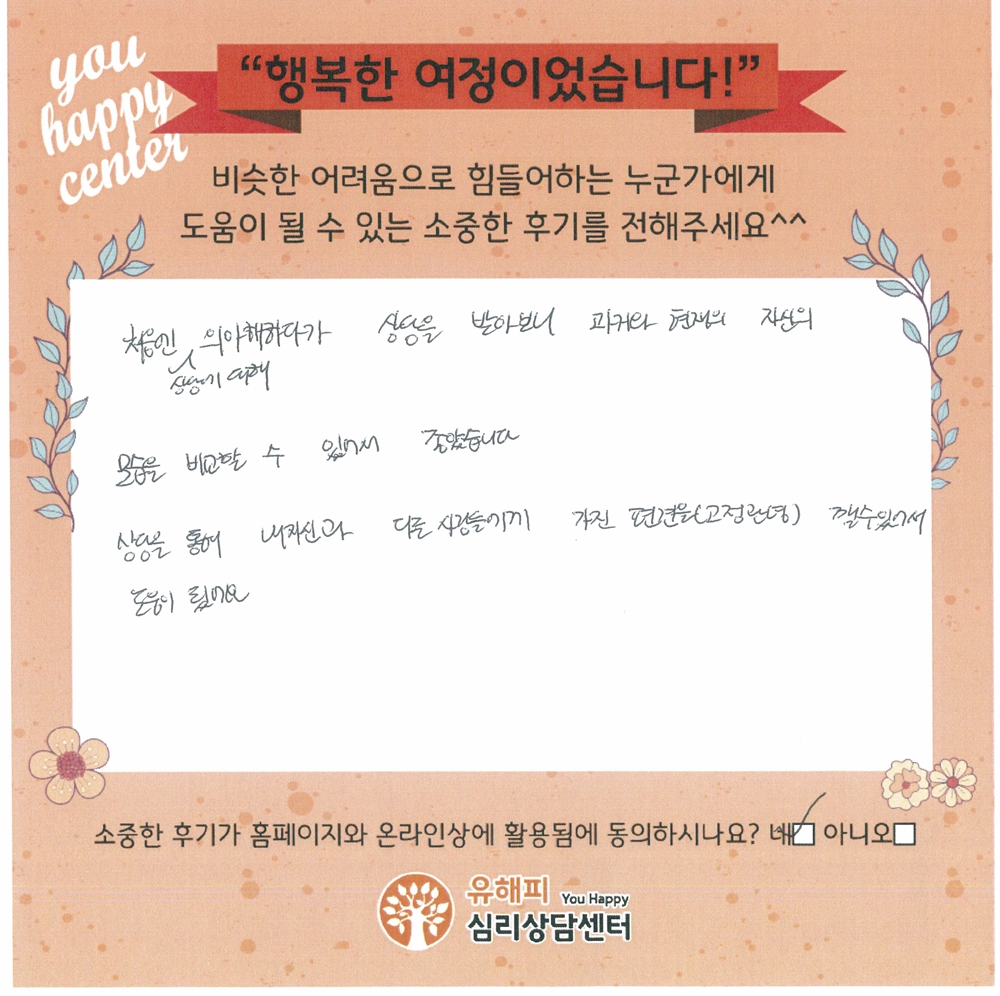 you
happy
center
“행복한 여정이었습니다!”
비슷한 어려움으로 힘들어하는 누군가에게
도움이 될 수 있는 소중한 후기를 전해주세요^^
처음엔 의아해하다가 상담을 받아보니 과거와 현재의 자신의
상담에 대해
모습을 비교할 수 있어서 좋았습니다
상담을 통해 내자신과 다른 사람들에게 가진 편견을(고정관념) 깰수있어서
도움이 됐어요
소중한 후기가 홈페이지와 온라인상에 활용됨에 동의하시나요? 네 아니오
유해피 You Happy
심리상담센터